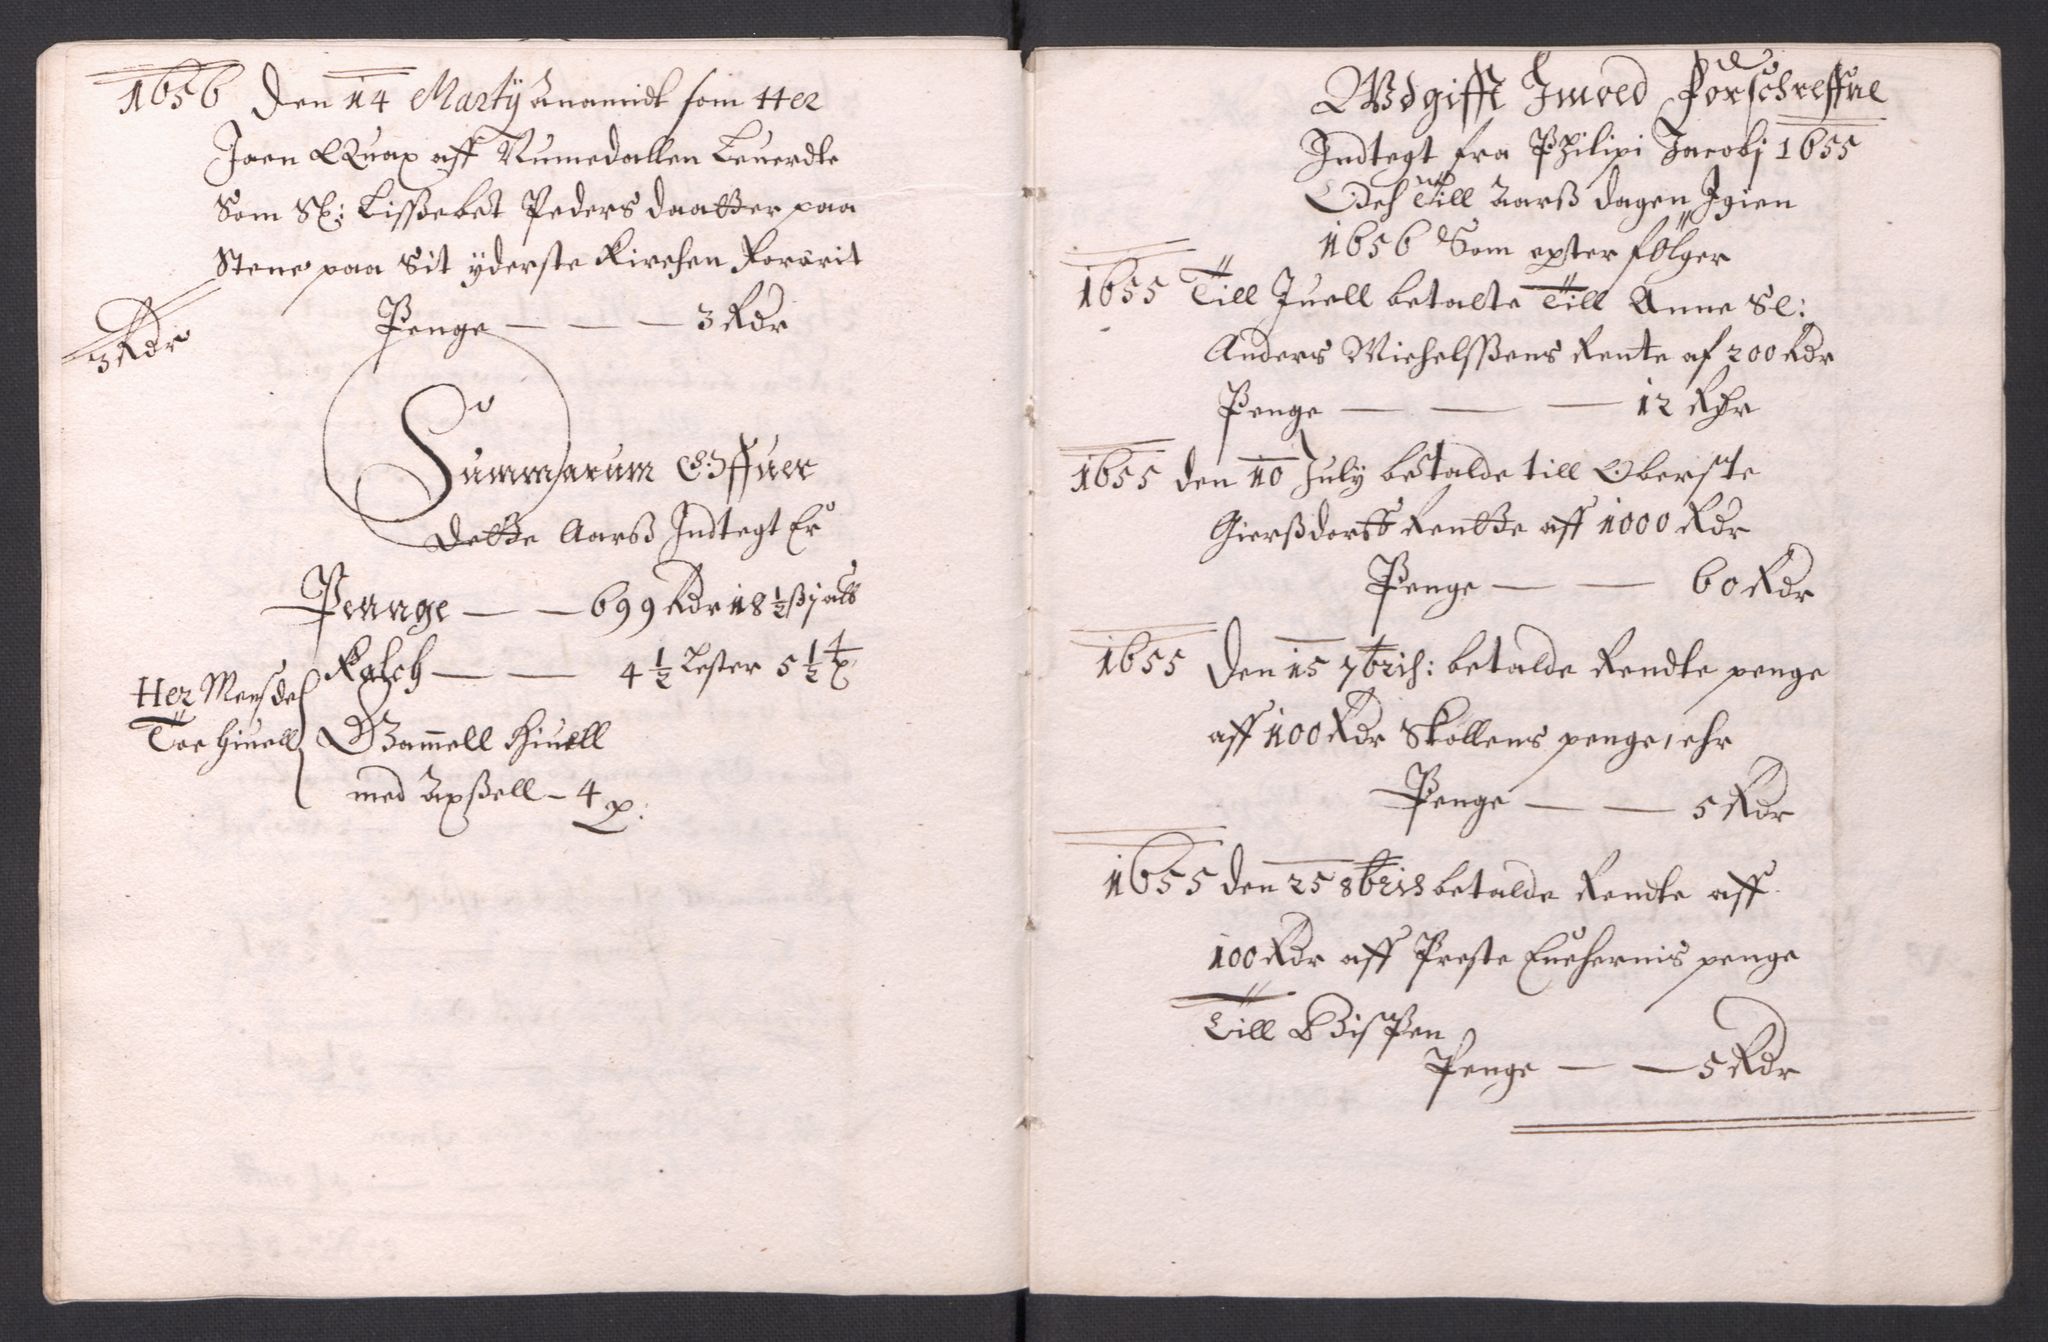 1656 den 14 Martÿ Anamidt som Her
Jaen Quap aff Numedallen Leuerdte
Som Sl: Lissebet Peders daatter paa
Stene paa Sit ÿderste Kirchen Forærit
Penge — — — 3 Rdr
3 Rdr
Summarum Offuer
Dette Aarß Indtegt Er
Pennge — — 699 Rdr 18 ½ ß
Kalch — — 4 ½ Lester 5 ½
Her Mens de
Toe Hiuell
Gamell Hiuell
med Axßell - 4
Wdgifft Imod Forschreffne
Indtegt fra Philipi Jacobj 1655
Och Till Aarß dagen Igien
1656 Som epter følger
1655 Till Juell betalte Till Anne Sl:
Anders Michelsßens Rente af 200 Rdr
Penge — — — 12 Rdr
1655 den 10 July betalde till Oberste
Gierßdorfs Rentte aff 1000 Rdr
Penge — — 60 Rdr
1655 den 15 7bris: betalde Rendte penge
aff 100 Rdr Skollens penge, ehr
Penge — — 5 Rdr
1655 den 25 8bris betalde Rendte aff
100 Rdr aff Preste Enchernis penge
Till Bispen
Penge — — 5 Rdr